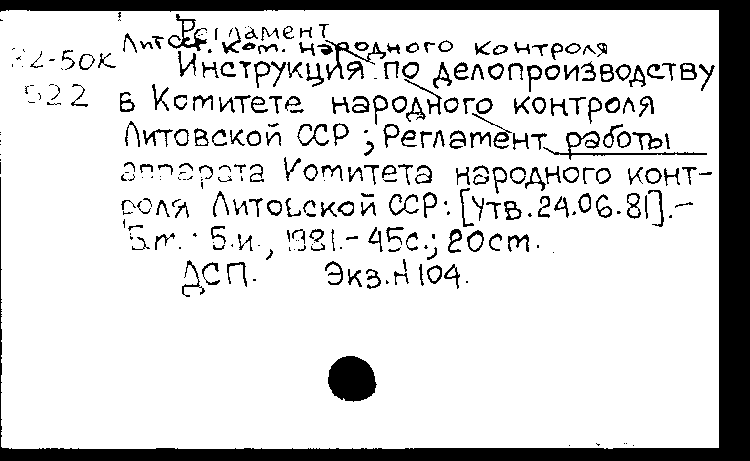 Регламент
Литовск. ком. народного контроля
82-50К
522
Инструкция по делопроизводству
в Комитете народного контроля
Литовской ССР ; Регламент работы
аппарата Комитета народного конт-
роля Литовской ССР: [Утв. 24.06.81]. –
Б.м. : Б.и., 1981. – 45с.; 20см.
ДСП. Экз. № 104.